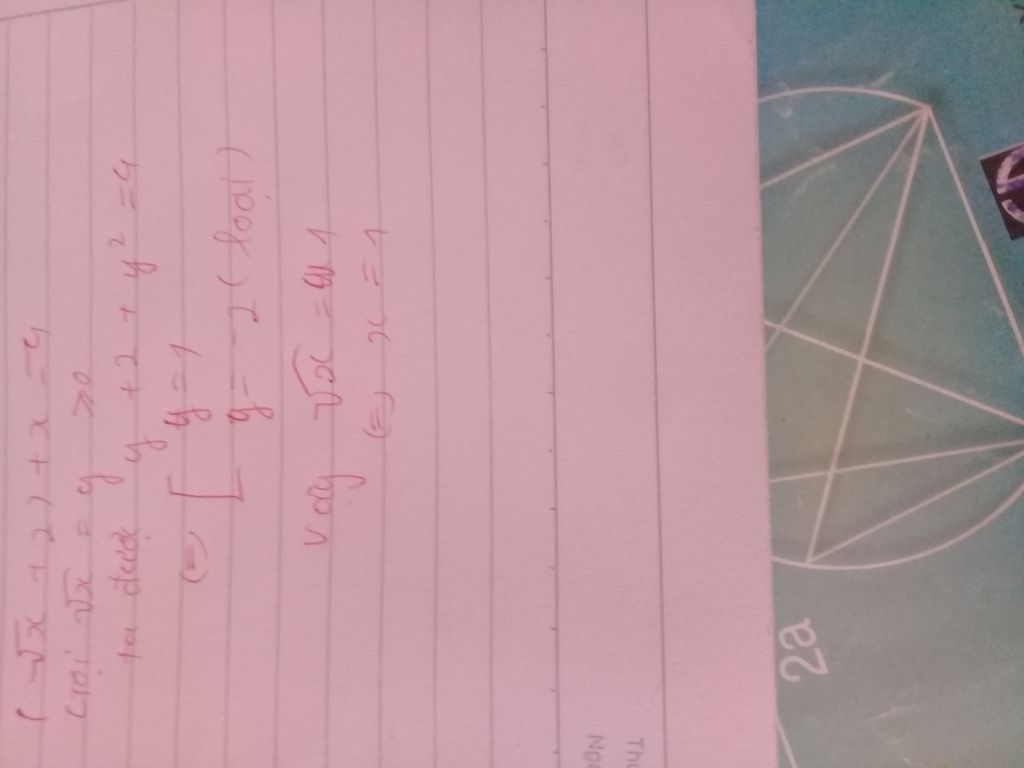 (√x + 2) + x = 4
Gọi √x = y ≥0
ta được y + 2 + y² = 4
(=) [ y = 1
y = -2 (loại)
Vậy √x = 1
(=) x = 1
2a